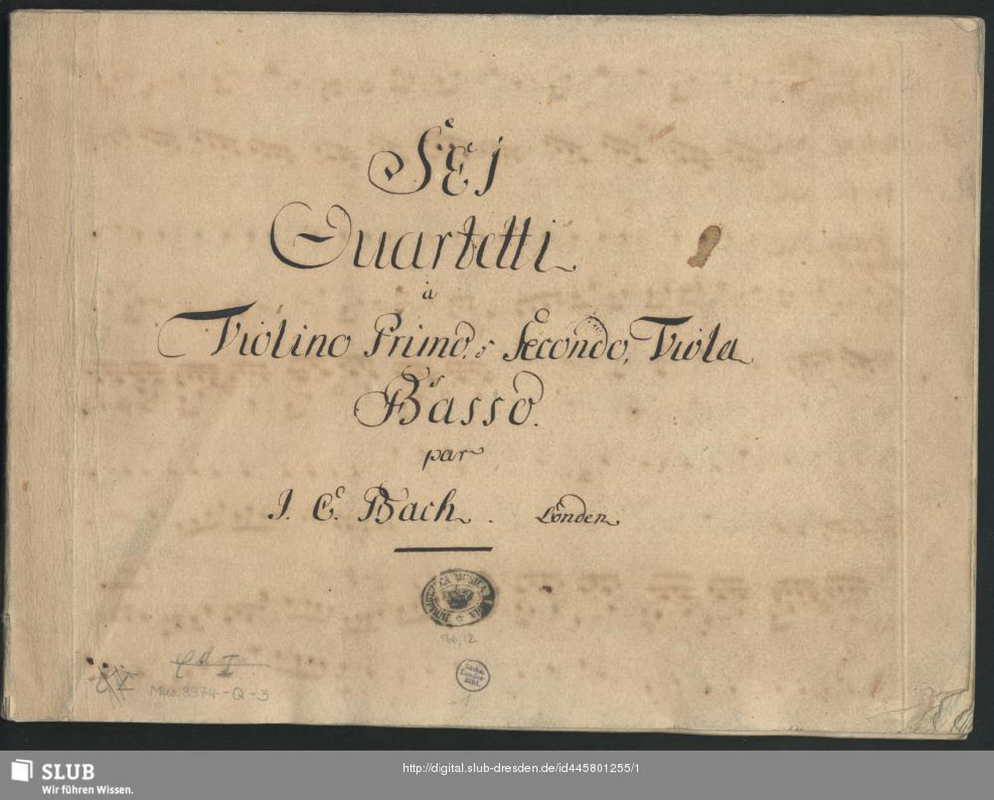 SEI
Quartetti
à
Violino Primo, Secondo, Viola
Basso.
par
J. C. Bach. London
Mus. 3374-Q-3
Sächs.
Landes-
Bibl.
SLUB
Wir führen Wissen.
http://digital.slub-dresden.de/id445801255/1